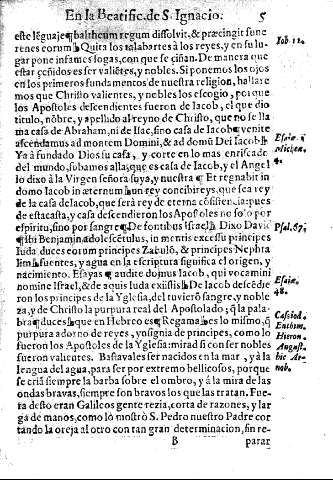 En la Beatific. de S. Ignacio. 5
este lẽguaje¶ baltheum regum dissoluit, & præcingit fune
renes eorum? Quita los talabartes à los reyes, y en su lu-
gar pone infames sogas, con que se ciñan. De manera que
estar çeñidos es ser valiẽtes, y nobles. Si ponemos los ojos
en los primeros fundamentos de nuestra religion, halla-
mos que Christo valientes, y nobles los escogio, porque
los Apostoles descendientes fueron de Iacob, el que dio
titulo, nõbre, y apellido al reyno de Christo, que no se lla
ma casa de Abraham, ni de Isac, sino casa de Iacob¶ venite
ascendamus ad montem Domini, & ad domũ Dei Iacob.
Ya à fundado Dios su casa, y corte en lo mas enriscado
del mundo, subamos alla, que es casa de Iacob, y el Angel
lo dixo à la Virgen señora suya, y nuestra ¶ Et regnabit in
domo Iacob in æternum un rey concibireys, que sea rey
de la casa de Iacob, que será rey de eterna cõsistencia: pues
desta casta, y casa descendieron los Apostoles no solo por
espiritu, sino por sangre¶ De fontibus Israel. Dixo Dauid
¶ ibi Beniamin adolescẽtulus, in mentis excessu principes
Iuda duces eorum principes Zabulõ, & principes Nephta
lim fuentes, y agua en la escriptura significa el origen, y
nacimiento. Esayas ¶ audite domus Iacob, qui vocamini
nomine Israel, & de aquis Iuda existis. De Iacob descẽdie
ron los principes de la Yglesia, del tuvierõ sangre, y noble
za, y de Christo la purpura real del Apostolado; q̃ la pala-
bra¶ duces que en Hebreo es¶ Regama es lo mismo, q̃
purpura adorno de reyes, ynsignia de principes, como lo
fueron los Apostoles de la Yglesia: mirad si con ser nobles
fueron valientes. Bastavales ser nacidos en la mar, y à la
lengua del agua, para ser por extremo bellicosos, porque
se criã siempre la barba sobre el ombro, y à la mira de las
ondas bravas, siempre son bravos los que las tratan. Fue-
ra desto eran Galileos gente rezia, corta de razones, y lar
ga de manos, como lo mostrò S. Pedro nuestro Padre cor
tando la oreja al otro con tan gran determinacion, sin re-
B parar
Iob. 12.
Esaiæ.
Micheæ.
4.
Psal. 67.
Esaiæ
48.
Casiod.
Euthim.
Hieron.
August.
hic Ar-
nob.